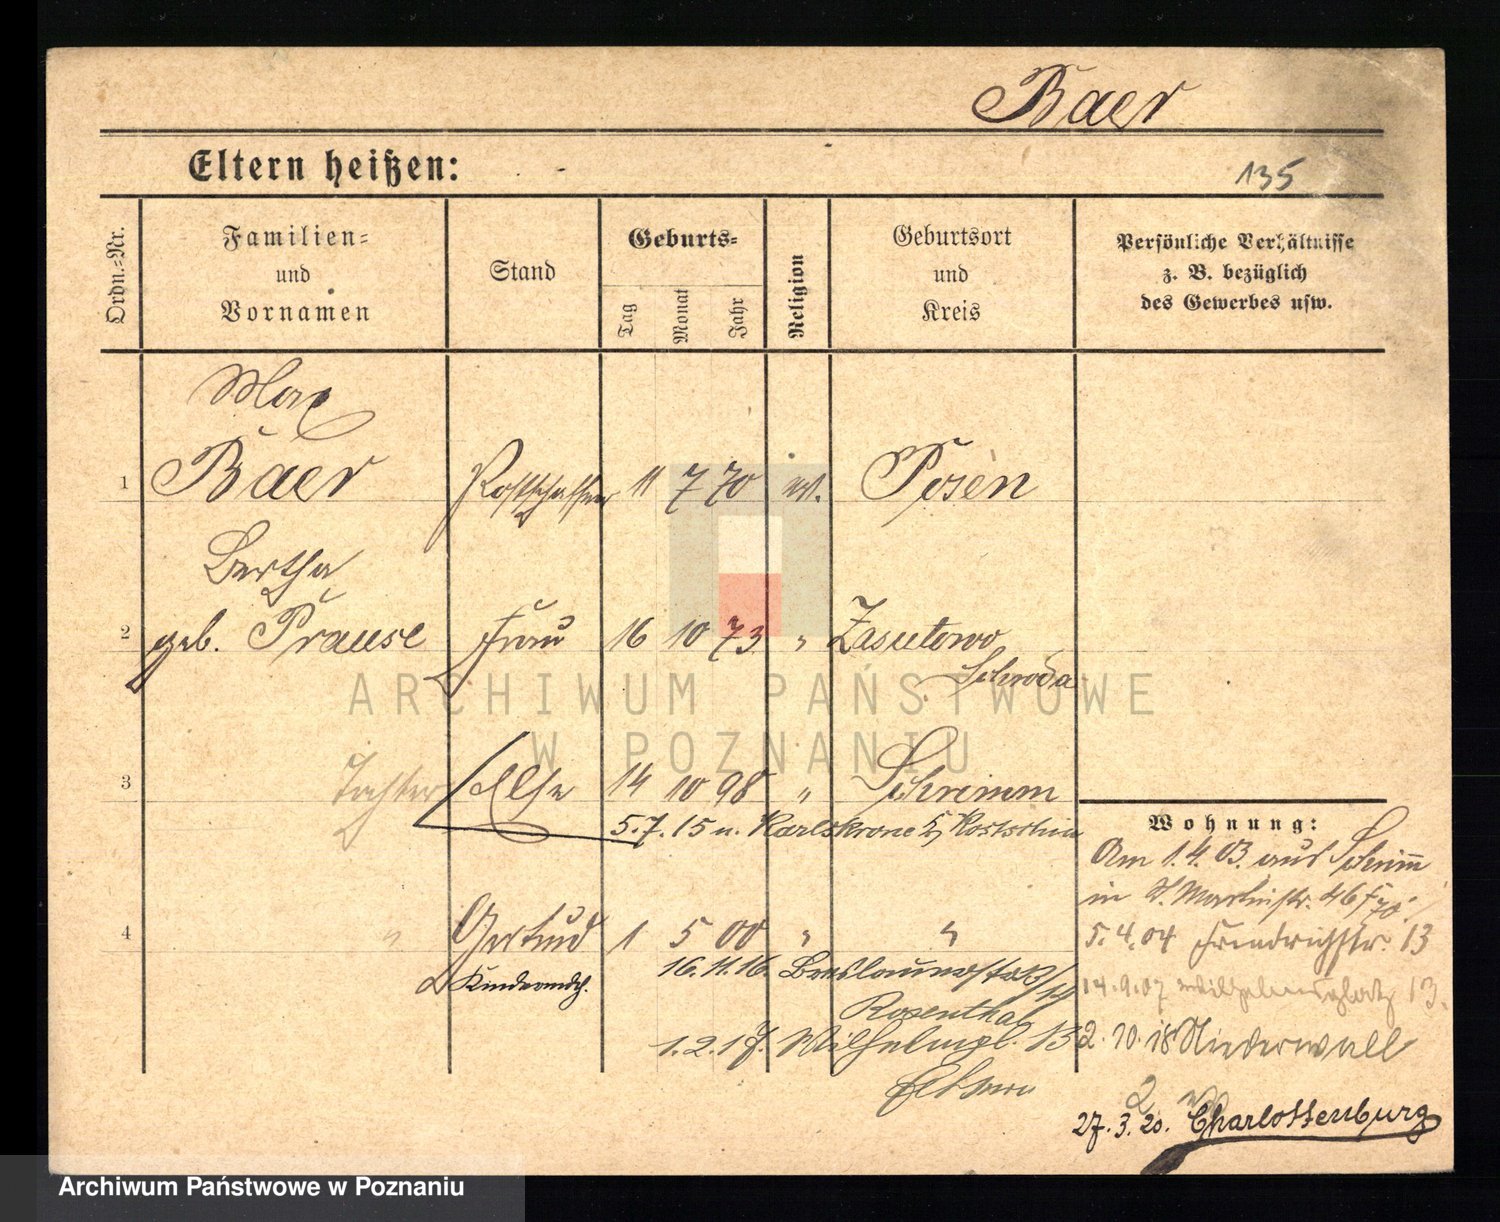 Baer
Eltern heißen:
135
Ordn.-Nr.
Familien- und Vornamen
Stand
Geburts-
Tag
Monat
Jahr
Religion
Geburtsort und Kreis
Persönliche Verhältnisse
z. B. bezüglich
des Gewerbes usw.
Max
1 Baer Postschaffner 11 7 70 ev. Posen
Bertha
2 geb. Prause Frau 16 10 73 " Zasutowo
Schroda
3 Tochter Else 14 10 98 " Schrimm
5.7.15 n. Karlskrone
Wohnung:
Am 1.4.03. aus Schrimm
in St. Martinstr. 46
4 " Gertrud 1 5 00 " "
5.4.04 Friedrichstr. 13
Kindermdch. 16.11.16. Breslauerstraße
14.9.07 Wilhelmsplatz 13.
Rosenthal
1.2.17. Wilhelmpl. 13
2.10.18 Niederwall
Eltern
2
27.3.20. Charlottenburg
ARCHIWUM PAŃSTWOWE
W POZNANIU
Archiwum Państwowe w Poznaniu